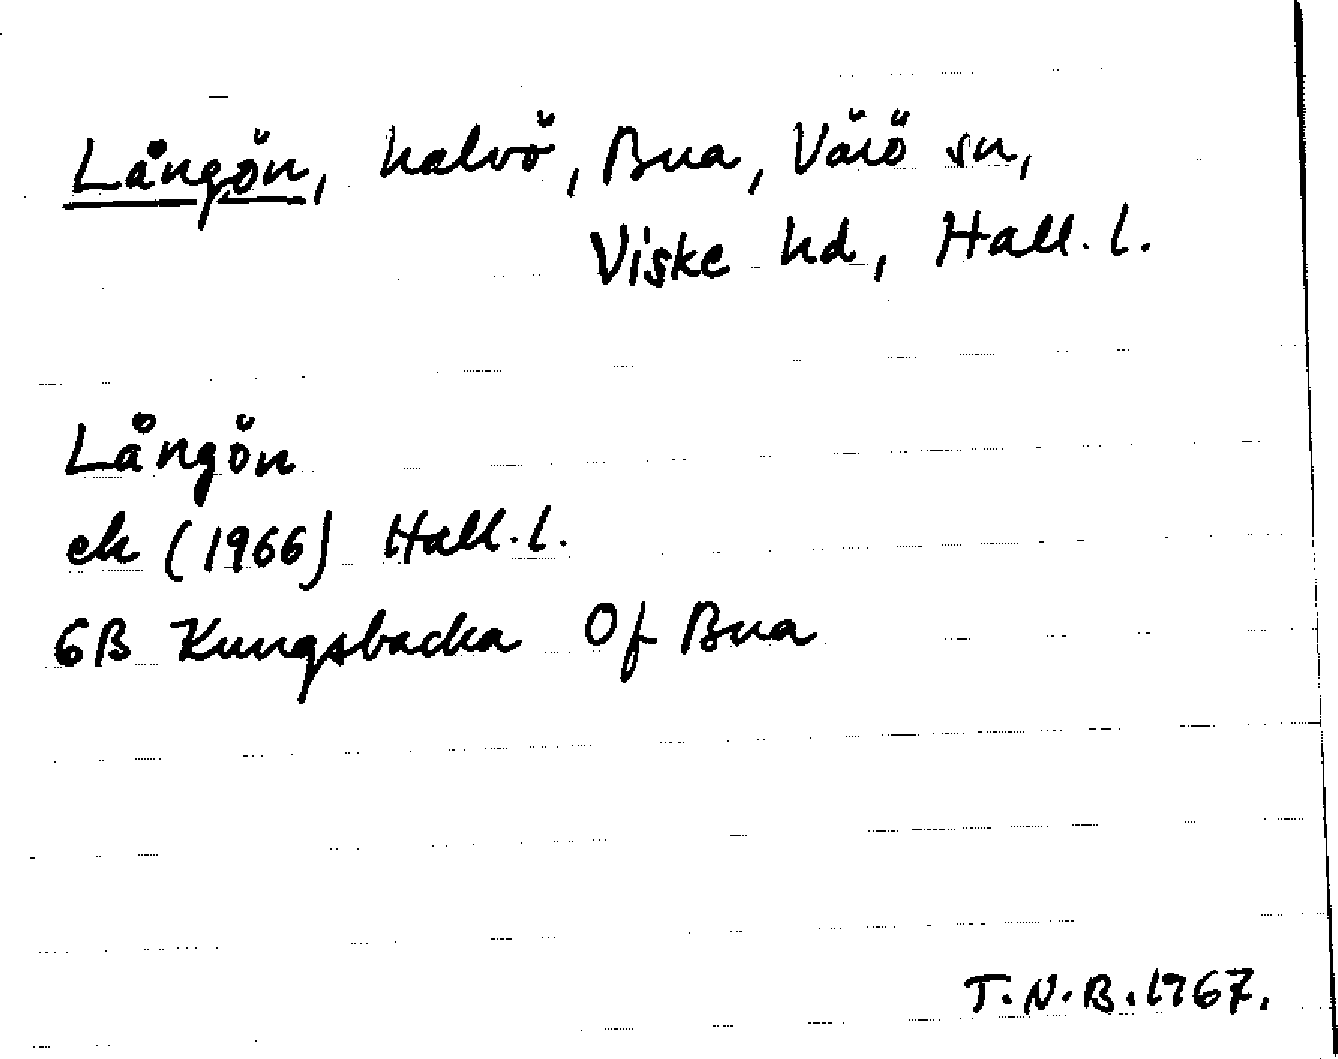 Långön, halvö, Bua, Värö sn,
Viske hd, Hall. l.
Långön
ek (1966) Hall. l.
6B Kungsbacka Of Bua
T.N.B. 1967.